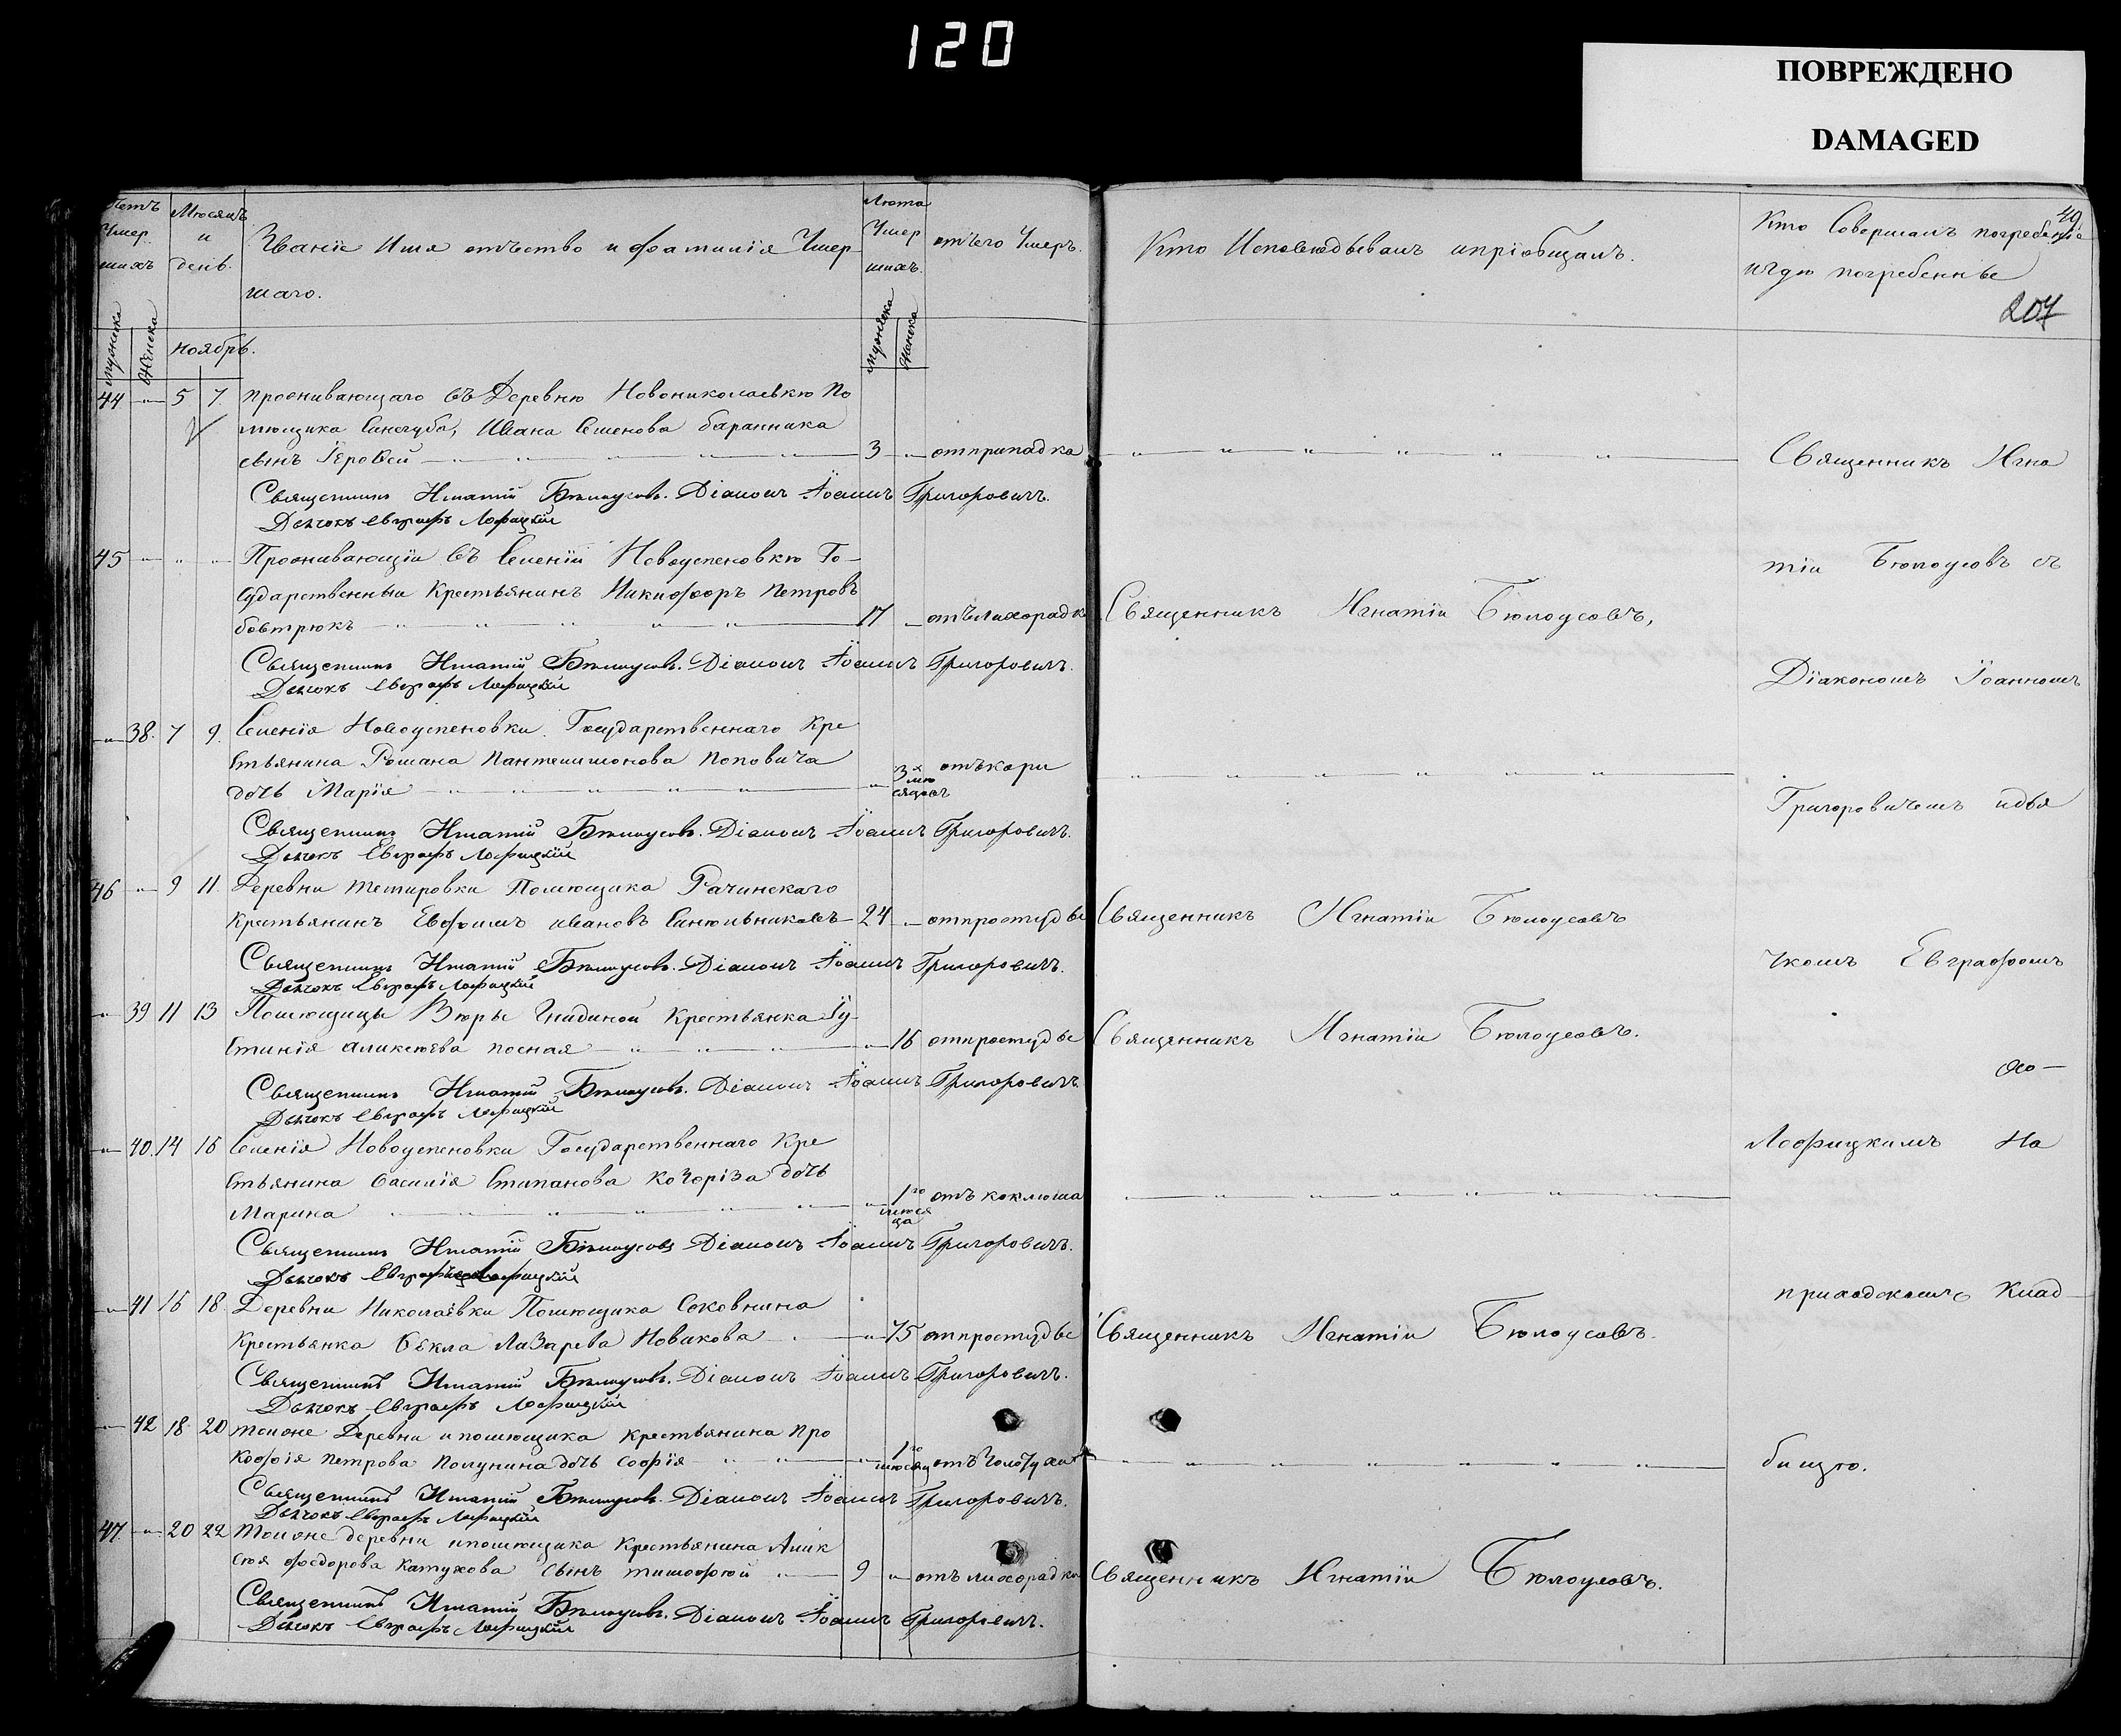 120
ПОВРЕЖДЕНО
DAMAGED
Щетъ Умер шихъ
Мѣсяцъ и день.
Званiе Имя отчество и фамилiя Умер
шаго.
Лѣта Умер шихъ.
отчего Умеръ.
Кто Исповѣдывалъ ипрiобщалъ.
Кто Совершалъ погребенiе
игдѣ погребенны
49
207
мужеска
женска
ноябрь.
мужеска
женска
44 5 7 проживающаго въ Деревнѣ Новониколаевкѣ По
мѣщика Синегуба, Ивана Семенова баранника
сынъ Iеровей 3 отприпадка
Священникъ Игнатiй Бѣлоусовъ. Дiаконъ Iоаннъ Григоровичъ.
Дьячокъ Евграфъ Лофицкiй
45 Проживающiй въ Селенiи Новоуспеновкѣ Го-
сударственный Крестьянинъ Никифоръ Петровъ
бовтрюкъ 17 отълихорадк Священникъ Игнатiй Бѣлоусовъ,
Священникъ Игнатiй Бѣлоусовъ. Дiаконъ Iоаннъ Григоровичъ.
Дьячокъ Евграфъ Лофицкiй
38. 7 9. Селенiя Новоуспеновки Государственнаго Кре
стьянина Романа Пантелимонова Поповича
дочь Марiя 3х мѣ сяцовъ отъкори
Священникъ Игнатiй Бѣлоусовъ. Дiаконъ Iоаннъ Григоровичъ.
Дьячокъ Евграфъ Лофицкiй
46 9 11. Деревни Темировки Помѣщика Рачинскаго
Крестьянинъ Евфимъ ивановъ Синельниковъ 24 отпростуды Священникъ Игнатiй Бѣлоусовъ
Священникъ Игнатiй Бѣлоусовъ. Дiаконъ Iоаннъ Григоровичъ.
Дьячокъ Евграфъ Лофицкiй
39 11 13 Помѣщицы Вѣры Гнидиной Крестьянка Iу
стинiя Аликсѣева посная 16 отпростуды Священникъ Игнатiй Бѣлоусовъ.
Священникъ Игнатiй Бѣлоусовъ. Дiаконъ Iоаннъ Григоровичъ
Дьячокъ Евграфъ Лофицкiй
40. 14 16 Селенiя Новоуспеновки Государственнаго Кре
стьянина Василiя Стипанова Кочорiза дочь
Марина 1го мѣся ца отъ коклюша
Священникъ Игнатiй Бѣлоусовъ Дiаконъ Iоаннъ Григоровичъ.
Дьячокъ Евграфъ Лофицкiй
41 16 18. Деревни Николаевки Помѣщика Соковнина
Крестьянка Өекла Лазарева Новакова 75 отпростуды Священникъ Игнатiй Бѣлоусовъ.
Священникъ Игнатiй Бѣлоусовъ. Дiаконъ Iоаннъ Григоровичъ.
Дьячокъ Евграфъ Лофицкiй
42 18. 20 тоиже Деревни ипомѣщика крестьянина Про
кофiя Петрова Полунина дочь Софiя 1го мѣсяц
Священникъ Игнатiй Бѣлоусовъ. Дiаконъ Iоаннъ Григоровичъ.
Дьячокъ Евграфъ Лофицкiй
47. 20 22 тоиже деревни ипомѣщика Крестьянина Алик
сѣя федорова Катухова сынъ тимофѣй 9 отъ лихорадки Священникъ Игнатiй Бѣлоусовъ.
Священникъ Игнатiй Бѣлоусовъ. Дiаконъ Iоаннъ Григоровичъ.
Дьячокъ Евграфъ Лофицкiй
Священникъ Игна
тiи Бѣлоусовъ съ
Дiакономъ Iоанномъ
Григоровичемъ идья
чкомъ Евграфомъ
Лофицкимъ На
приходскомъ Клад
бищѣ.